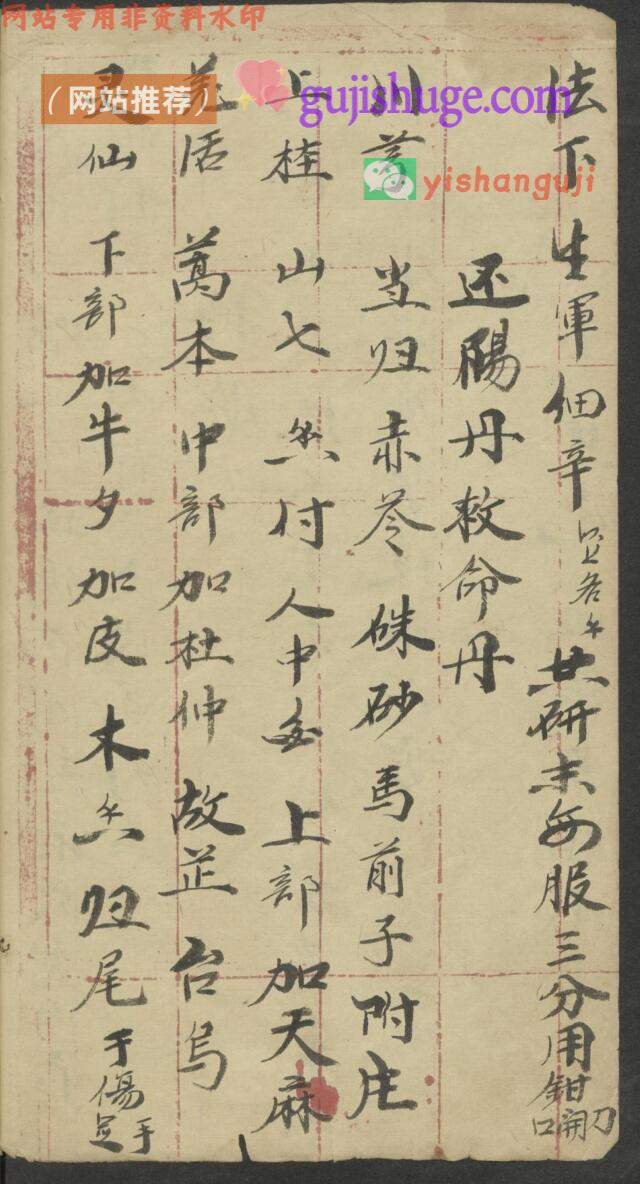 网站专用非资料水印
(网站推荐)
gujishuge.com
yishanguji
法下生軍细辛 以上各 共研末每服三分用鉗刀開口
还陽丹救命丹
川芎当归赤苓硃砂馬前子附庄
上桂 山七 然付人中 上部加天麻
羌活 藁本 中部加杜仲故芷台烏
灵仙 下部加牛夕加皮木 归尾 傷 手足